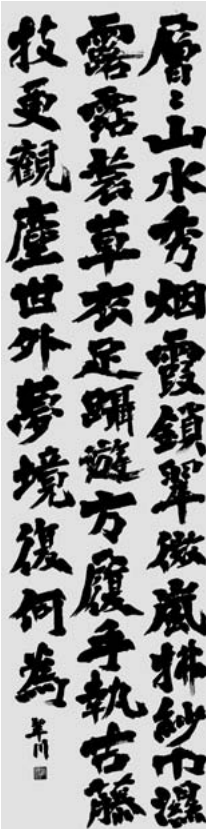 層〻山水秀烟霞鎖翠微嵐拂紗巾濕
露霑蓑草衣足躡遊方履手執古藤
枝更觀塵世外夢境復何為
川